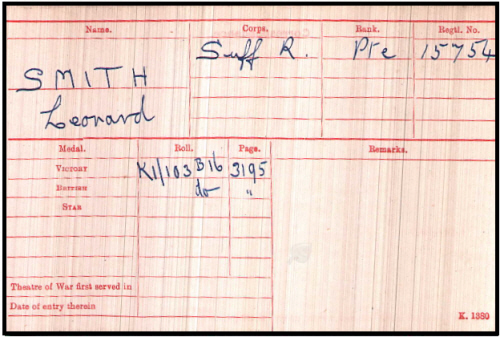 Name. Corps. Rank. Regtl. No.
Suff R. Pte 15754
SMITH
Leonard
Medal. Roll. Page. Remarks.
VICTORY K1/103 B16 3195
BRITISH do "
STAR
Theatre of War first served in
Date of entry therein
K. 1380